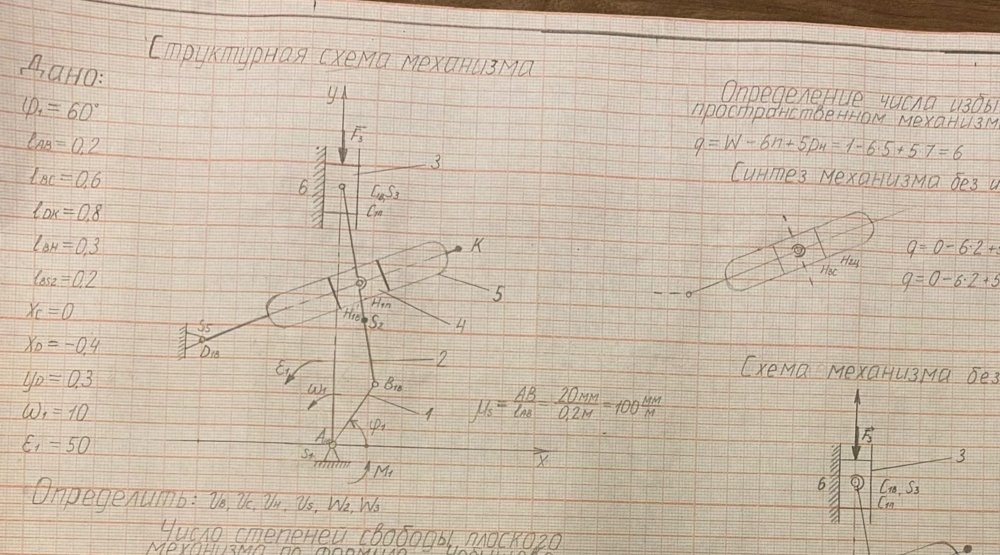 Структурная схема механизма
Дано:
φ₁ = 60°
lAB = 0,2
lBC = 0,6
lDK = 0,8
lBH = 0,3
lBS2 = 0,2
XC = 0
XD = -0,4
YD = 0,3
ω₁ = 10
ε₁ = 50
y
F₃
3
6
C1В,S3
C1п
K
5
H1В
H1п
4
S2
S5
D1В
2
ε₁
ω₁
B1В
1
φ₁
A
S1
M₁
x
μs = AB/lAB = 20мм/0,2м = 100 мм/м
Определить: VB, VC, VH, V5, W2, W3
Число степеней свободы плоского
механизма по формуле
Определение числа избы
пространственном механизм
q = W - 6n + 5pн = 1 - 6·5 + 5·7 = 6
Синтез механизма без и
HВС
H2ц
q = 0 - 6·2 +
q = 0 - 6·2 + 5
Схема механизма без
F₃
3
6
C1В, S3
C1п